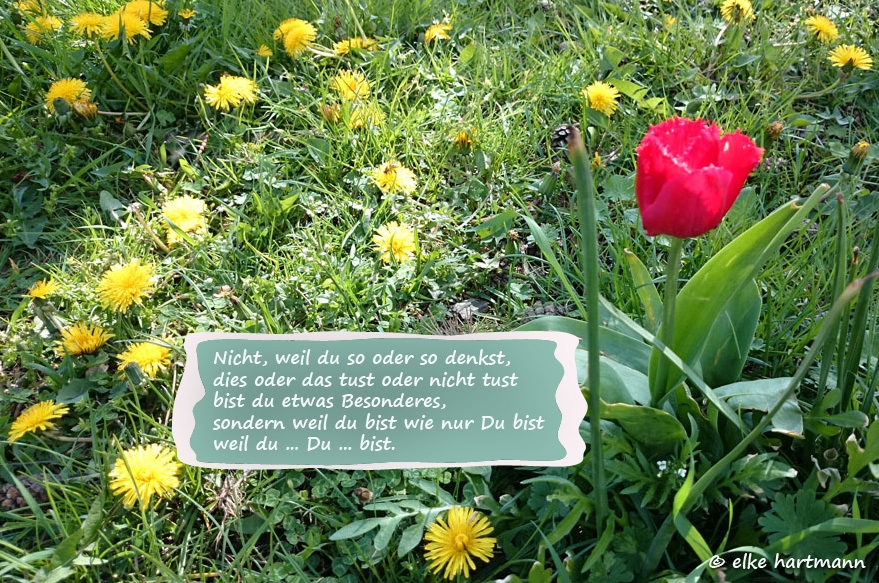 Nicht, weil du so oder so denkst,
dies oder das tust oder nicht tust
bist du etwas Besonderes,
sondern weil du bist wie nur Du bist
weil du ... Du ... bist.
© elke hartmann